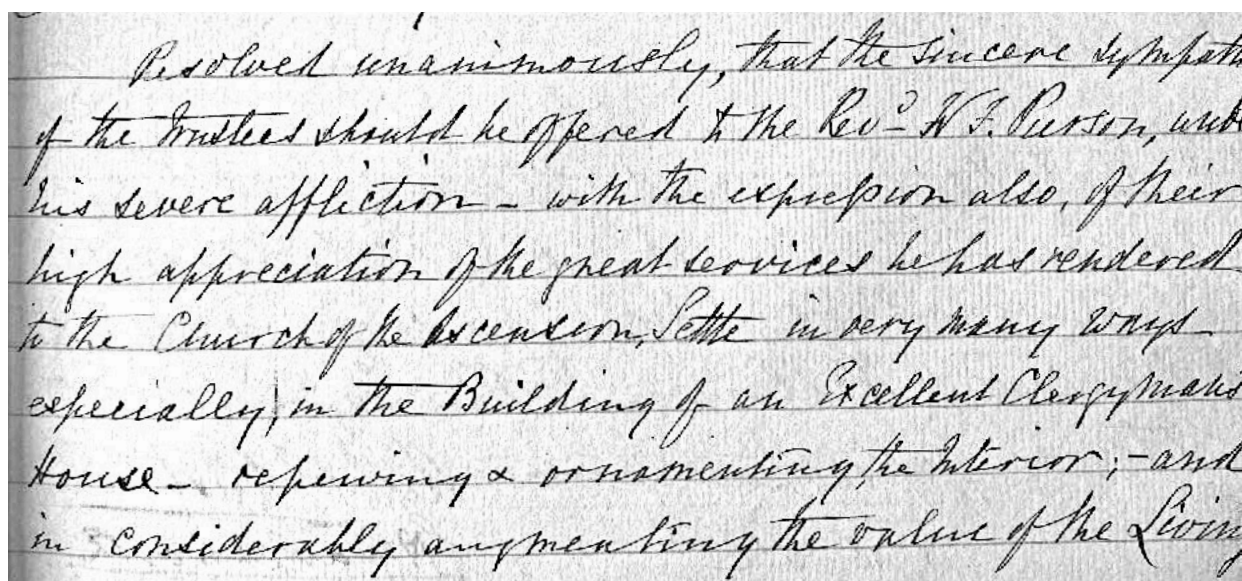 Resolved unanimously, that the sincere sympath
of the Trustees should be offered to the Revd W F. Pierson, unde
his severe affliction - with the expression also, of their
high appreciation of the great services he has rendered
to the Church of the Ascension, Settle in very many ways
especially, in the Building of an Excellent Clergyman's
House - repewing & ornamenting the Interior; - and
in considerably augmenting the value of the Living